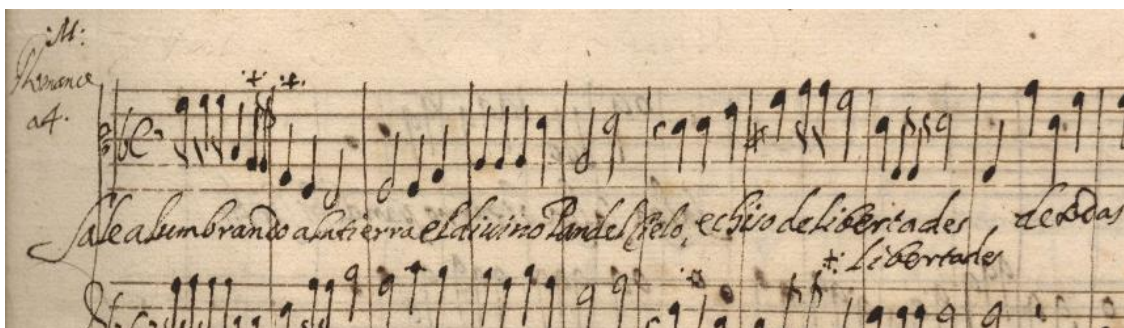 :M:
Romance
a4.
Sale alumbrando a la tierra el divino Pan del Cielo, echiso de libertades de todas
+: libertades